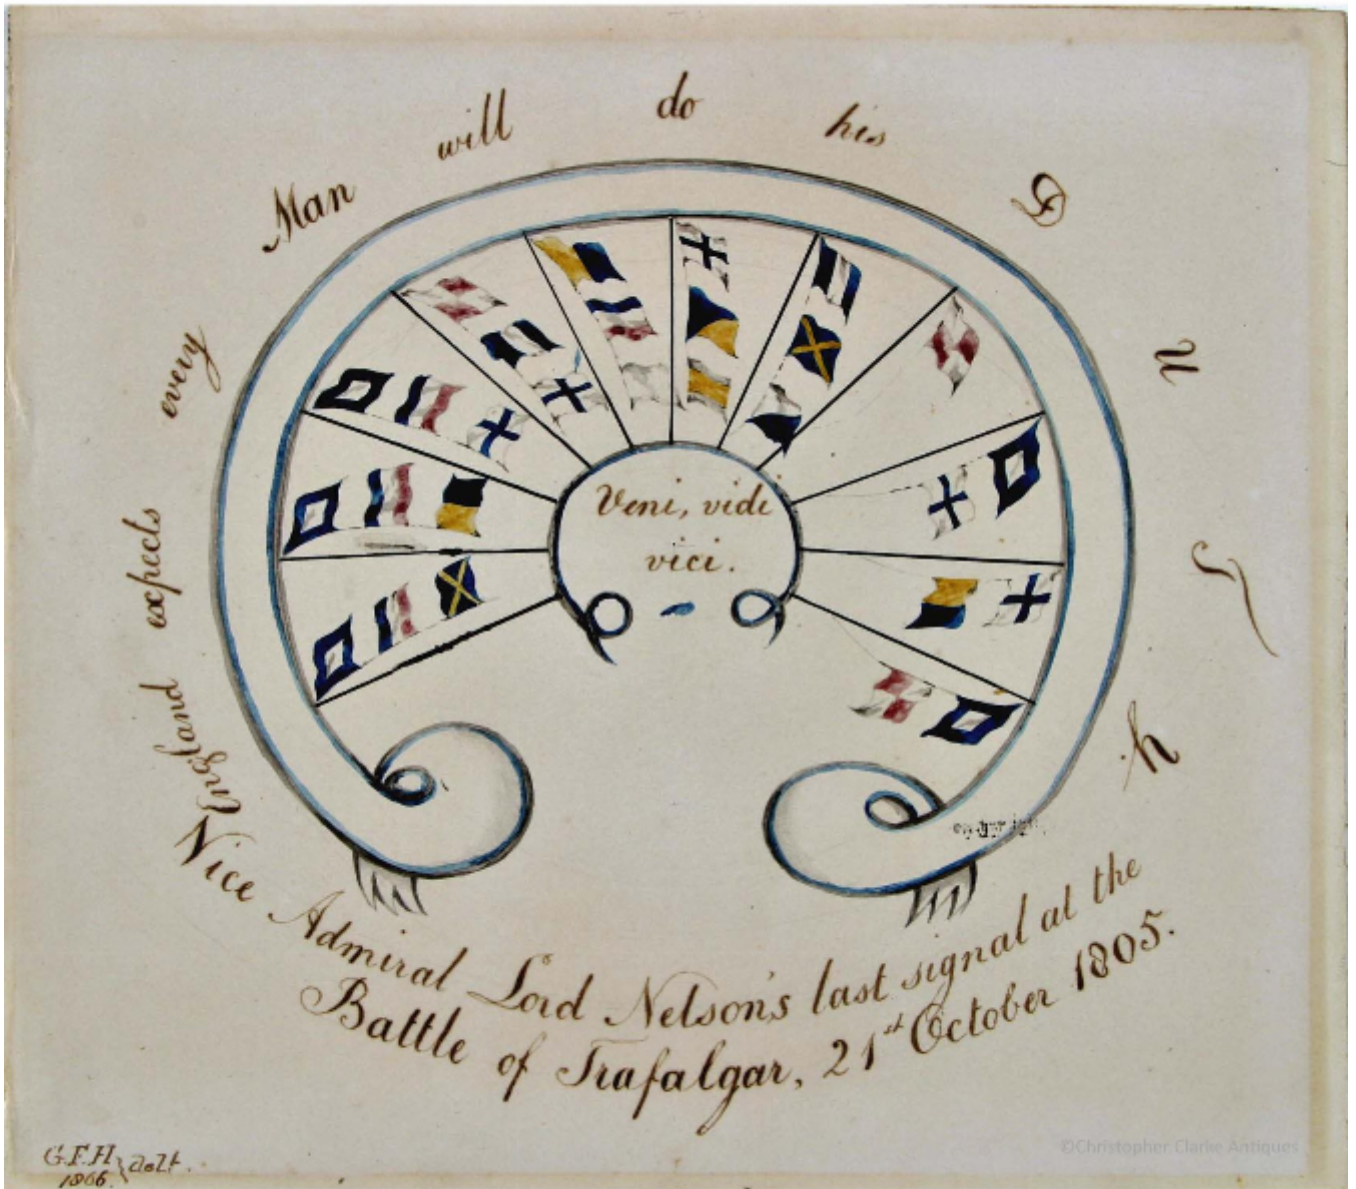 England expects every Man will do his D U T Y
Veni, vidi
vici.
Vice Admiral Lord Nelson's last signal at the
Battle of Trafalgar, 21st October 1805.
G.F.H
1866
©Christopher Clarke Antiques